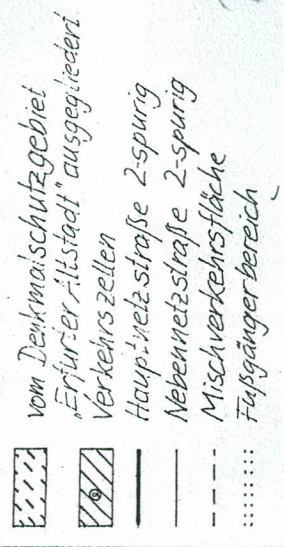 vom Denkmalschutzgebiet
„Erfurter Altstadt" ausgegliedert
Verkehrszellen
Hauptnetzstraße 2-spurig
Nebennetzstraße 2-spurig
Mischverkehrsfläche
Fußgängerbereich